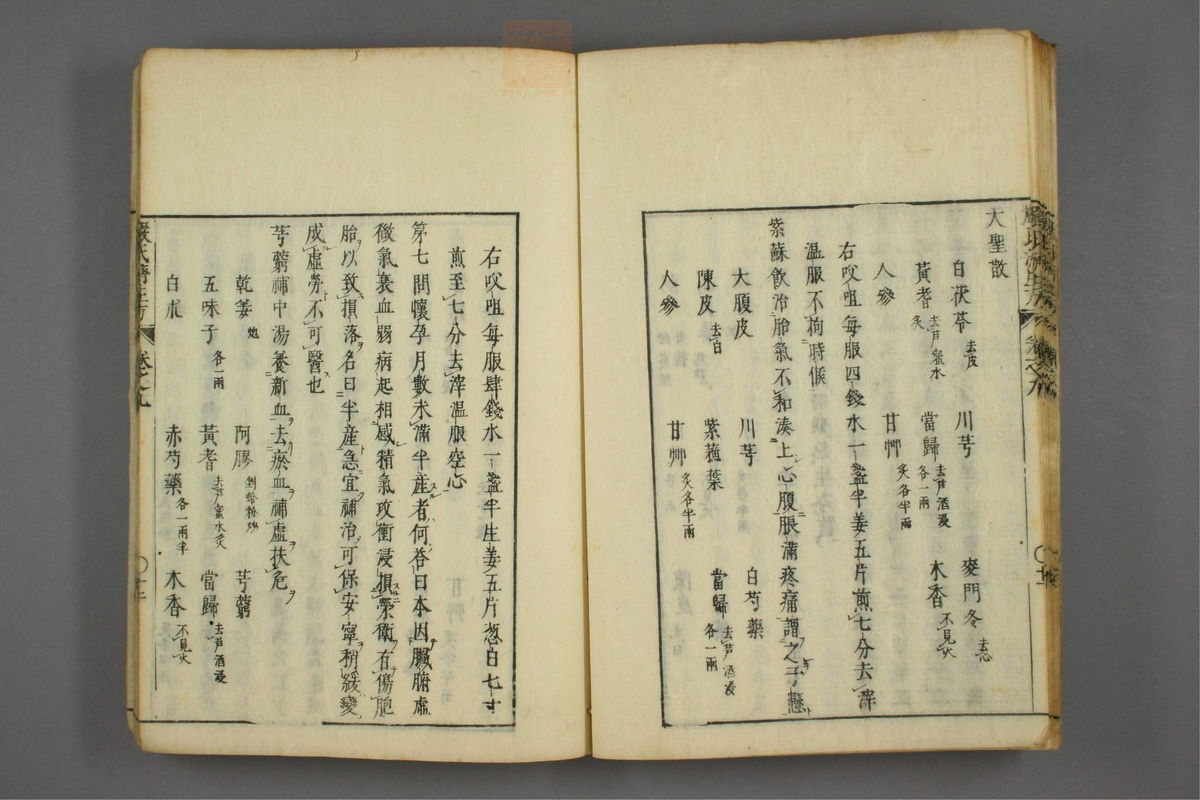 大聖散
白茯苓去皮 川芎 麥門冬去心
黃耆去芦蜜水炙 當歸去芦酒浸 木香不見火各一兩
人參 甘艸炙各半兩
右㕮咀每服四錢水一盞半姜五片煎七分去滓
温服不拘時候
紫蘇飲治胎氣不和湊上心腹脹滿疼痛謂之子懸
大腹皮 川芎 白芍藥
陳皮去白 紫蘓葉 當歸去芦酒浸各一兩
人參 甘艸炙各半兩
右㕮咀每服肆錢水一盞半生姜五片葱白七寸
煎至七分去滓温服空心
第七問懷孕月數未滿半産者何答曰本因臟腑虛
微氣衰血弱病起相感精氣攻衝浸損榮衛有傷胞
胎以致損落名曰半産急宜補治可保安寧稍緩變
成虛勞不可醫也
芎藭補中湯養新血去瘀血補虛扶危
乾姜炮 阿膠剉蛤粉炒 芎藭
五味子各一兩 黃耆去芦蜜水炙 當歸去芦酒浸
白朮 赤芍藥各一兩半 木香不見火
嚴氏濟生方 卷之九